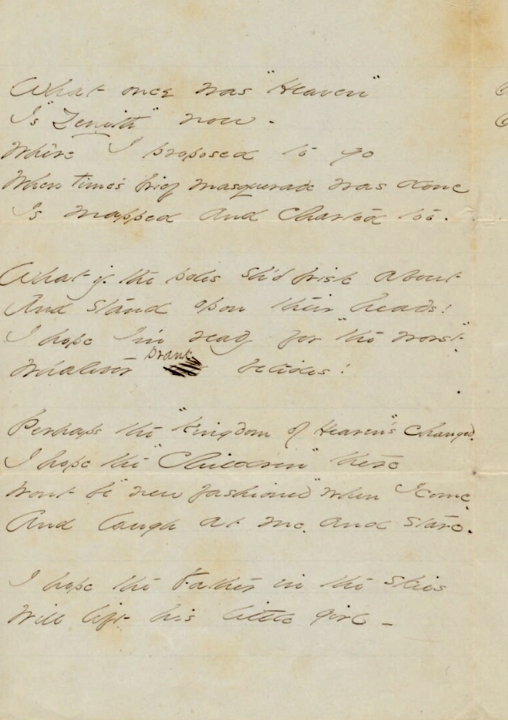 What once was "Heaven"
Is "Zenith" now -
Where I proposed to go
When time's brief masquerade was done
Is mapped and charted too.
What if the poles sh'd frisk about
And stand upon their heads!
I hope I'm ready for "the worst"
Whatever prank betides!
Perhaps the "kingdom of Heaven's" changed.
I hope the "Children" there
Wont be "new fashioned" when I come
And laugh at me, and stare.
I hope the Father in the skies
Will lift his little girl -